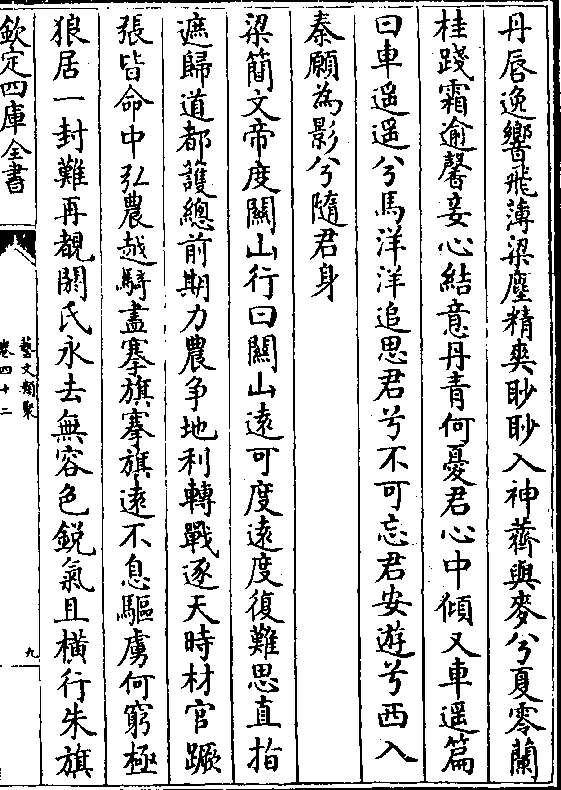 丹唇逸響飛薄梁塵精爽眇眇入神薺與麥兮夏零蘭
桂踐霜逾馨妾心結意丹青何憂君心中傾又車遥篇
曰車遥遥兮馬洋洋追思君兮不可忘君安遊兮西入
秦願為影兮隨君身
梁簡文帝度關山行曰關山遠可度遠度復難思直指
遮歸道都護總前期力農争地利轉戰逐天時材官蹶
張皆命中弘農越騎盡搴旗搴旗遠不息驅虜何窮極
狼居一封難再覩閼氏永去無容色鋭氣且橫行朱旗
欽定四庫全書
藝文類聚
卷四十二
九